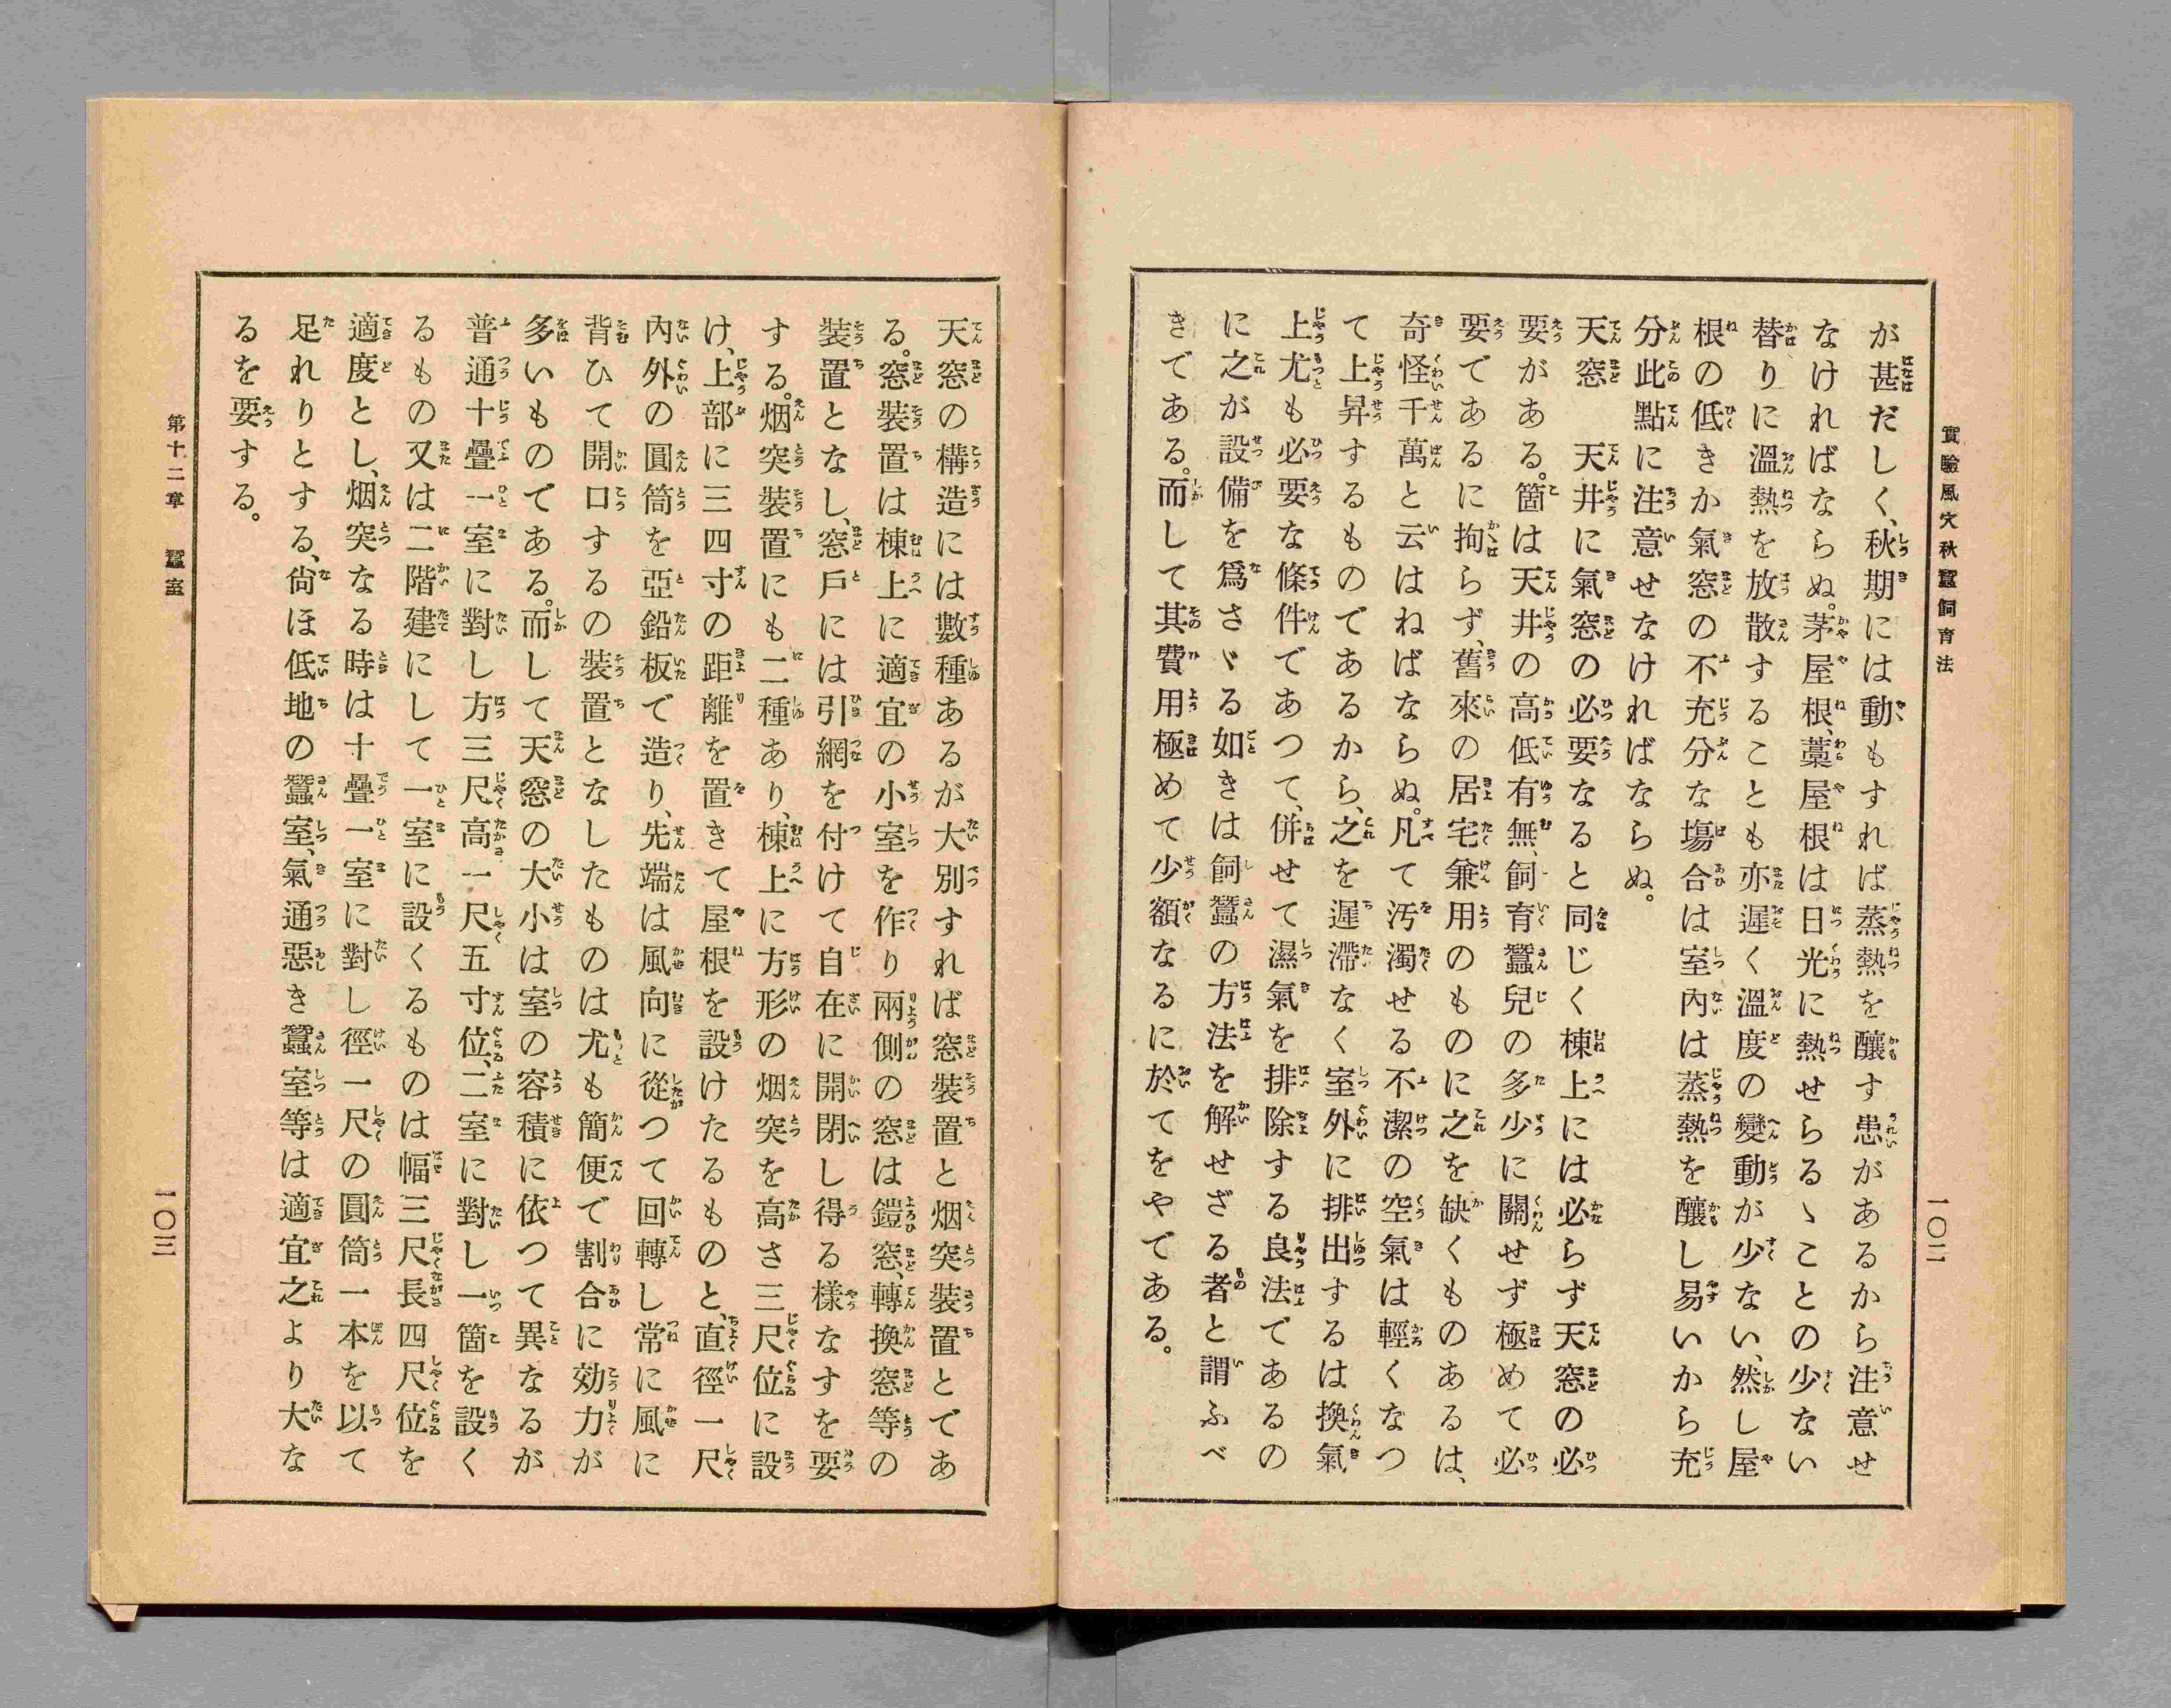 實驗風穴秋蠶飼育法
一〇二
が甚だしく、秋期には動もすれば蒸熱を釀す患があるから注意せ
なければならぬ。茅屋根、藁屋根は日光に熱せらるゝことの少ない
替りに溫熱を放散することも亦遲く溫度の變動が少ない、然し屋
根の低きか氣窓の不充分な塲合は室內は蒸熱を釀し易いから充
分此點に注意せなければならぬ。
天窓　天井に氣窓の必要なると同じく棟上には必らず天窓の必
要がある。箇は天井の高低有無、飼育蠶兒の多少に關せず極めて必
要であるに拘らず、舊來の居宅兼用のものに之を缺くものあるは、
奇怪千萬と云はねばならぬ。凡て汚濁せる不潔の空氣は輕くなつ
て上昇するものであるから、之を遲滯なく室外に排出するは換氣
上尤も必要な條件であつて、併せて濕氣を排除する良法であるの
に之が設備を爲さゞる如きは飼蠶の方法を解せざる者と謂ふべ
きである。而して其費用極めて少額なるに於てをやである。
天窓の構造には數種あるが大別すれば窓裝置と烟突裝置とであ
る。窓裝置は棟上に適宜の小室を作り兩側の窓は鎧窓、轉換窓等の
裝置となし、窓戶には引網を付けて自在に開閉し得る樣なすを要
する。烟突裝置にも二種あり、棟上に方形の烟突を高さ三尺位に設
け、上部に三四寸の距離を置きて屋根を設けたるものと、直徑一尺
內外の圓筒を亞鉛板で造り、先端は風向に從つて回轉し常に風に
背ひて開口するの裝置となしたものは尤も簡便で割合に効力が
多いものである。而して天窓の大小は室の容積に依つて異なるが
普通十疊一室に對し方三尺高一尺五寸位、二室に對し一箇を設く
るもの又は二階建にして一室に設くるものは幅三尺長四尺位を
適度とし、烟突なる時は十疊一室に對し徑一尺の圓筒一本を以て
足れりとする、尙ほ低地の蠶室、氣通惡き蠶室等は適宜之より大な
るを要する。
第十二章　蠶室
一〇三